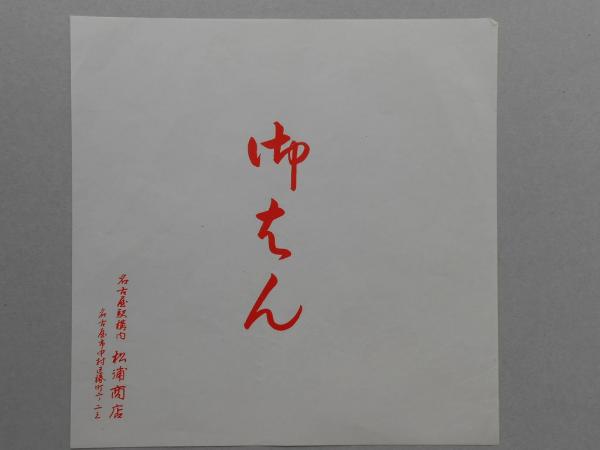 御はん
名古屋駅構内 松浦商店
名古屋市中村区椿町